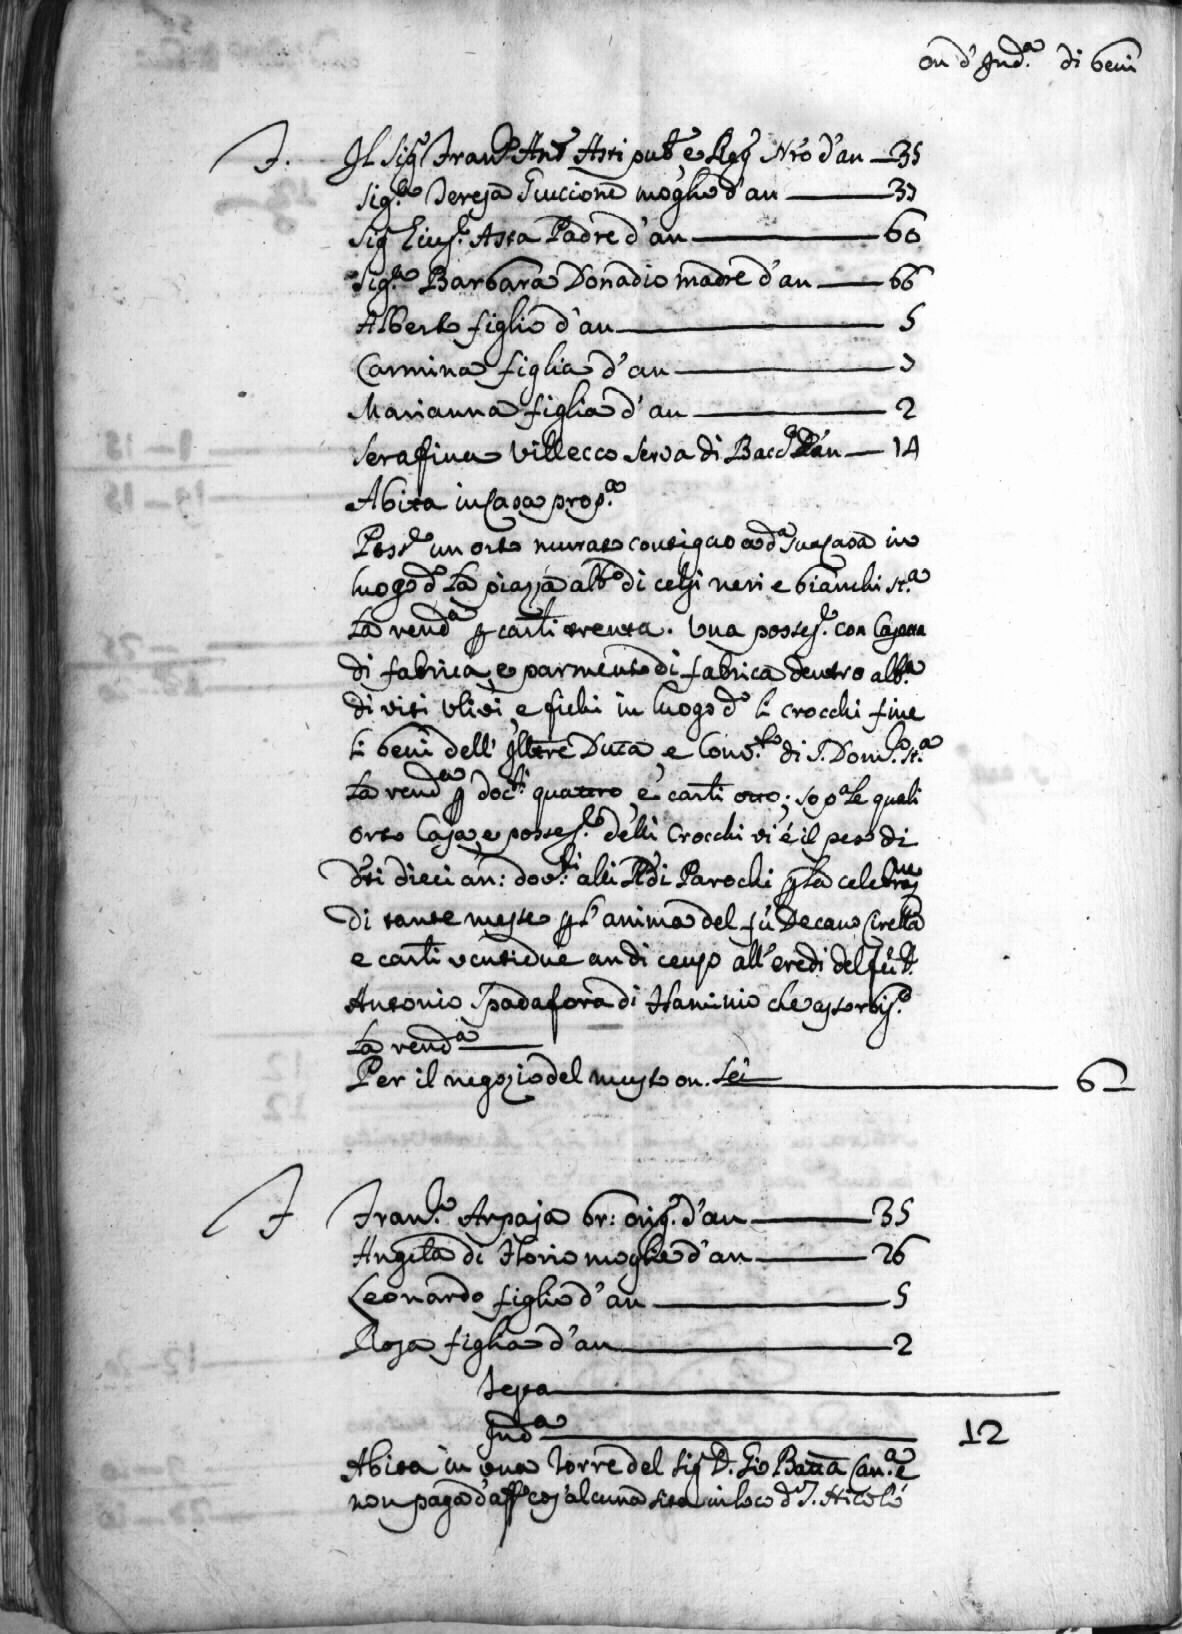 on d'Ind.a di beni
F. Il Sig.r Fran.co Ant.o Asti pub.o e Reg.o N.ro d'an — 35
Sig.ra Teresa Guccione moglie d'an — 33
Sig.r Asta Padre d'an — 60
Sig.ra Barbara Donadio madre d'an — 66
Alberto figlio d'an — 5
Carmina figlia d'an — 3
Marianna figlia d'an — 2
Serafina Villecco serva di d'an — 14
Abita in Casa prop.a
Poss.e un orto murato contiguo a d.a sua Casa in
luogo d.o la piazza alb.o di celsi neri e bianchi st.a
la rend.a p carli trenta. Una posses.e con Casetta
di fabrica, e parmento di fabrica dentro alb.a
di viti ulivi, e fichi in luogo d.o li Crocchi fine
li beni dell' Ill.tre Duca, e Conv.to di S. Dom.co st.a
la rend.a p doc.ti quattro, e carli otto; sop.a le quali
orto Casa, e posses.e delli Crocchi vi é il peso di
d.ti dieci an: dov.ti alli R.di Parochi p la celebraz.ne
di tante messe p l'anima del fù Decano Cirella
e carli ventidue an di censo all' eredi del fù D.
Antonio Spadafora di Flaminio che assorbis.e
la rend.a —
Per il negozio del musto on. sei — 6 —
F Fran.co Arpaja br: orig.o d'an — 35
Angela di Florio moglie d'an — 26
Leonardo figlio d'an — 5
Rosa figlia d'an — 2
Testa —
Ind.a — 12
Abita in una Torre del Sig.r D. Gio Batta Can.a e
non paga d'aff.o cos'alcuna sita in loco d.o S. Nicolò